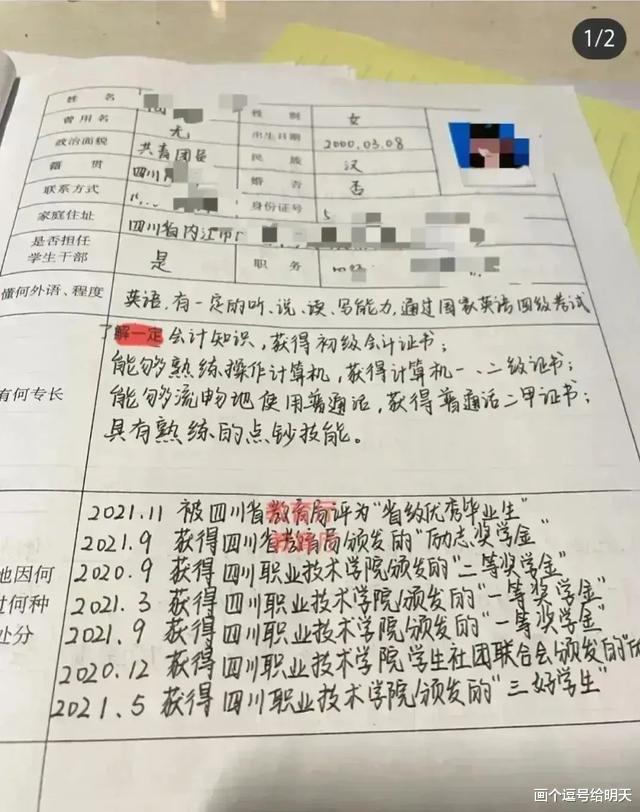 1/2
姓 名 性 别 女
曾用名 无 出生日期 2000.03.08
政治面貌 共青团员 民 族 汉
籍 贯 四川 婚 否 否
联系方式 身份证号 5
家庭住址 四川省内江市
是否担任 是 职 务
学生干部
懂何外语、程度 英语,有一定的听、说、读、写能力,通过国家英语四级考试
了解一定会计知识,获得初级会计证书;
能够熟练操作计算机,获得计算机一、二级证书;
有何专长 能够流畅地使用普通话,获得普通话二甲证书;
具有熟练的点钞技能。
2021.11 被四川省教育局评为"省级优秀毕业生"
2021.9 获得四川省教育局颁发的"励志奖学金"
地因何 2020.9 获得四川职业技术学院颁发的"二等奖学金"
过何种 2021.3 获得四川职业技术学院颁发的"一等奖学金"
处分 2021.9 获得四川职业技术学院颁发的"一等奖学金"
2020.12 获得四川职业技术学院学生社团联合会颁发的"
2021.5 获得四川职业技术学院颁发的"三好学生"
画个逗号给明天